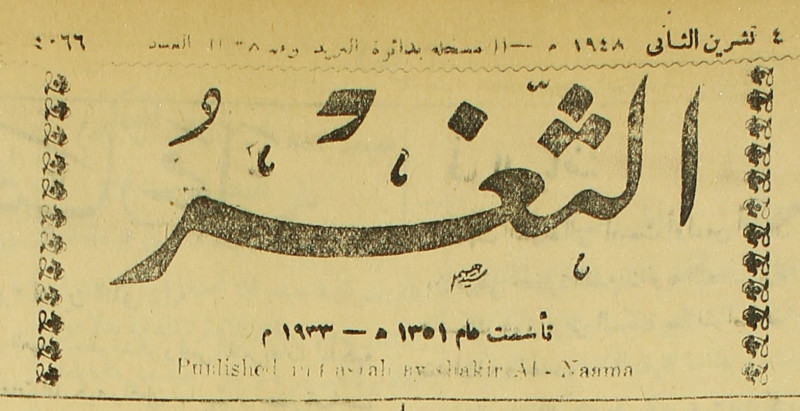 ٤ تشرين الثانى ١٩٤٨ م — مسجله بدائرة البريد العدد ٤٠٦٦
الثغر
تأسست عام ١٣٥١ ه — ١٩٣٣ م
Published Shakir Al - Naama